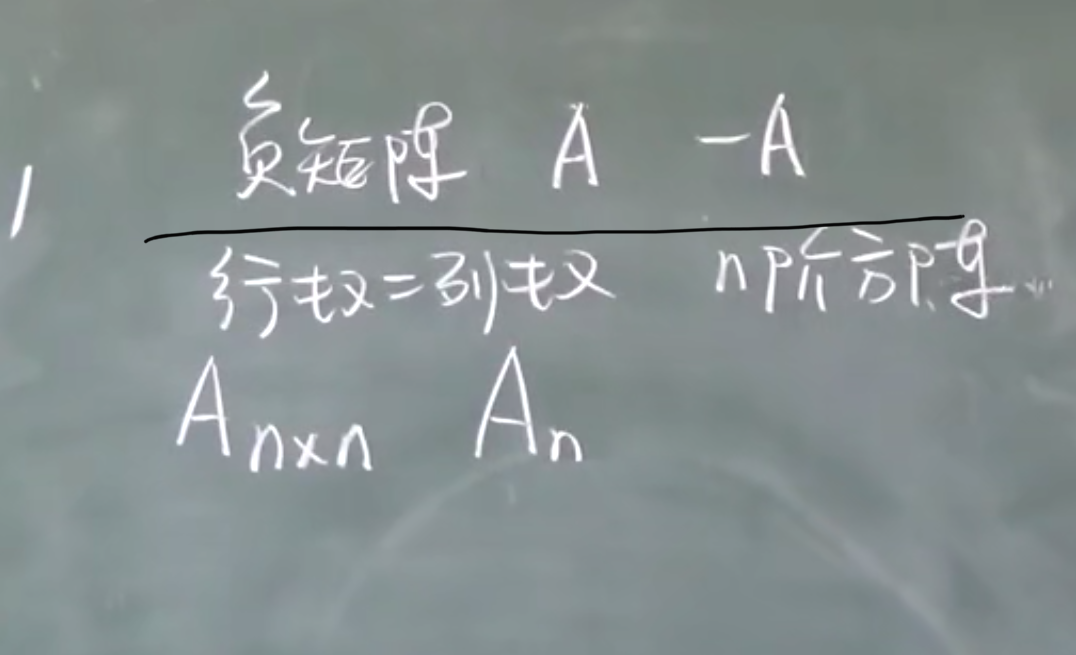 负矩阵 A -A
行数=列数 n阶方阵
Aₙₓₙ Aₙ